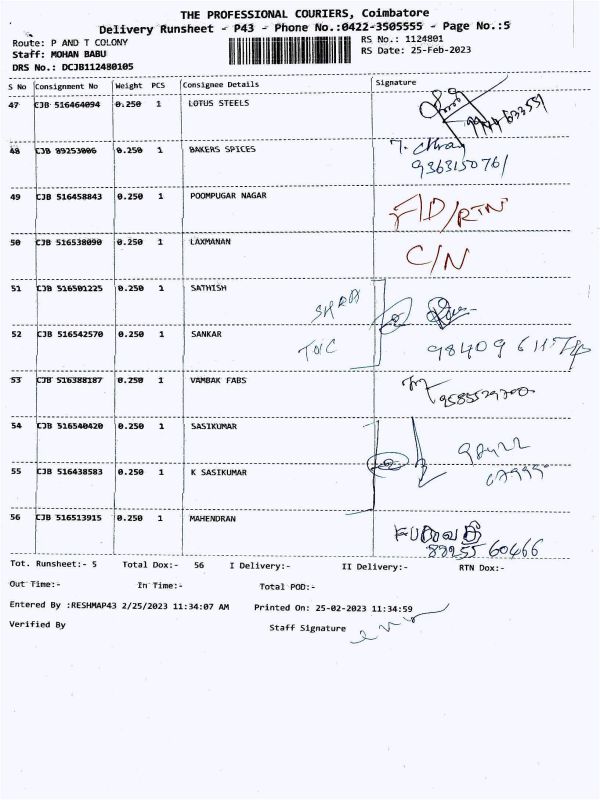 THE PROFESSIONAL COURIERS, Coimbatore
Delivery Runsheet - P43 - Phone No.:0422-3505555 - Page No.:5
Route: P AND T COLONY RS No.: 1124801
Staff: MOHAN BABU RS Date: 25-Feb-2023
DRS No.: DCJB112480105
S No Consignment No Weight PCS Consignee Details Signature
47 CJB 516464094 0.250 1 LOTUS STEELS
48 CJB 89253006 0.250 1 BAKERS SPICES
9363150761
49 CJB 516458843 0.250 1 POOMPUGAR NAGAR
F/D/RTN
50 CJB 516538090 0.250 1 LAXMANAN
C/N
51 CJB 516501225 0.250 1 SATHISH
52 CJB 516542570 0.250 1 SANKAR
53 CJB 516388187 0.250 1 VAMBAK FABS
54 CJB 516540420 0.250 1 SASIKUMAR
55 CJB 516438583 0.250 1 K SASIKUMAR
56 CJB 516513915 0.250 1 MAHENDRAN
60466
Tot. Runsheet:- 5 Total Dox:- 56 I Delivery:- II Delivery:- RTN Dox:-
Out Time:- In Time:- Total POD:-
Entered By :RESHMAP43 2/25/2023 11:34:07 AM Printed On: 25-02-2023 11:34:59
Verified By Staff Signature